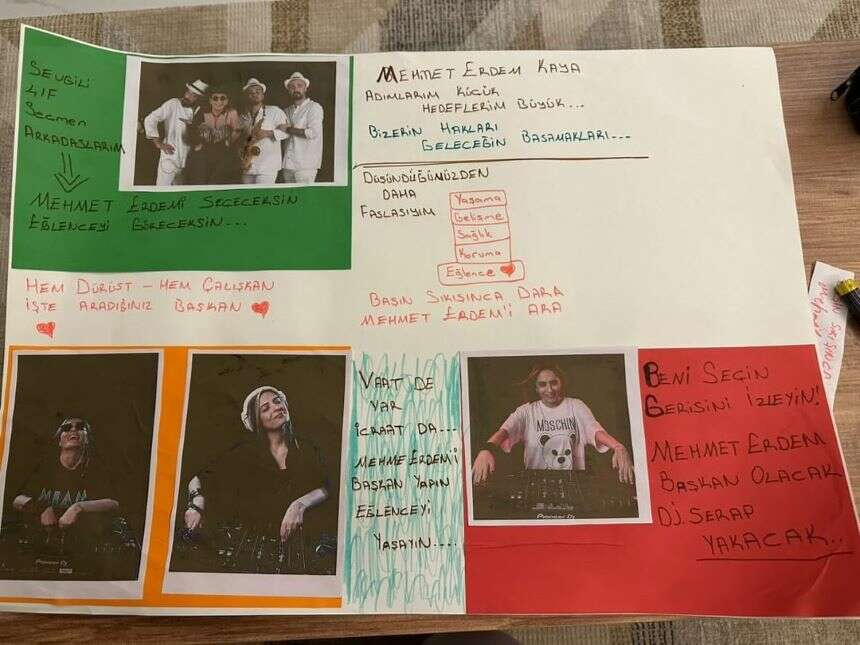 SEVGİLİ
4/F
SEÇMEN
ARKADAŞLARIM
MEHMET ERDEMİ SEÇECEKSİN
EĞLENCEYİ GÖRECEKSİN...
MEHMET ERDEM KAYA
ADIMLARIM KÜÇÜK
HEDEFLERİM BÜYÜK...
BİZLERİN HAKLARI
GELECEĞİN BASAMAKLARI...
DÜŞÜNDÜĞÜNÜZDEN
DAHA
FASLASIYIM
Yaşama
Gelişme
Sağlık
Koruma
Eğlence
BAŞIN SIKIŞINCA DARA
MEHMET ERDEM'İ ARA
HEM DÜRÜST - HEM ÇALIŞKAN
İŞTE ARADIĞINIZ BAŞKAN
Pioneer DJ
VAAT DE
VAR
İCRAAT DA...
MEHME ERDEM'İ
BAŞKAN YAPIN
EĞLENCEYİ
YAŞAYIN....
MOSCHIN
Pioneer DJ
BENİ SEÇİN
GERİSİNİ İZLEYİN!
MEHMET ERDEM
BAŞKAN OLACAK
DJ. SERAP
YAKACAK..